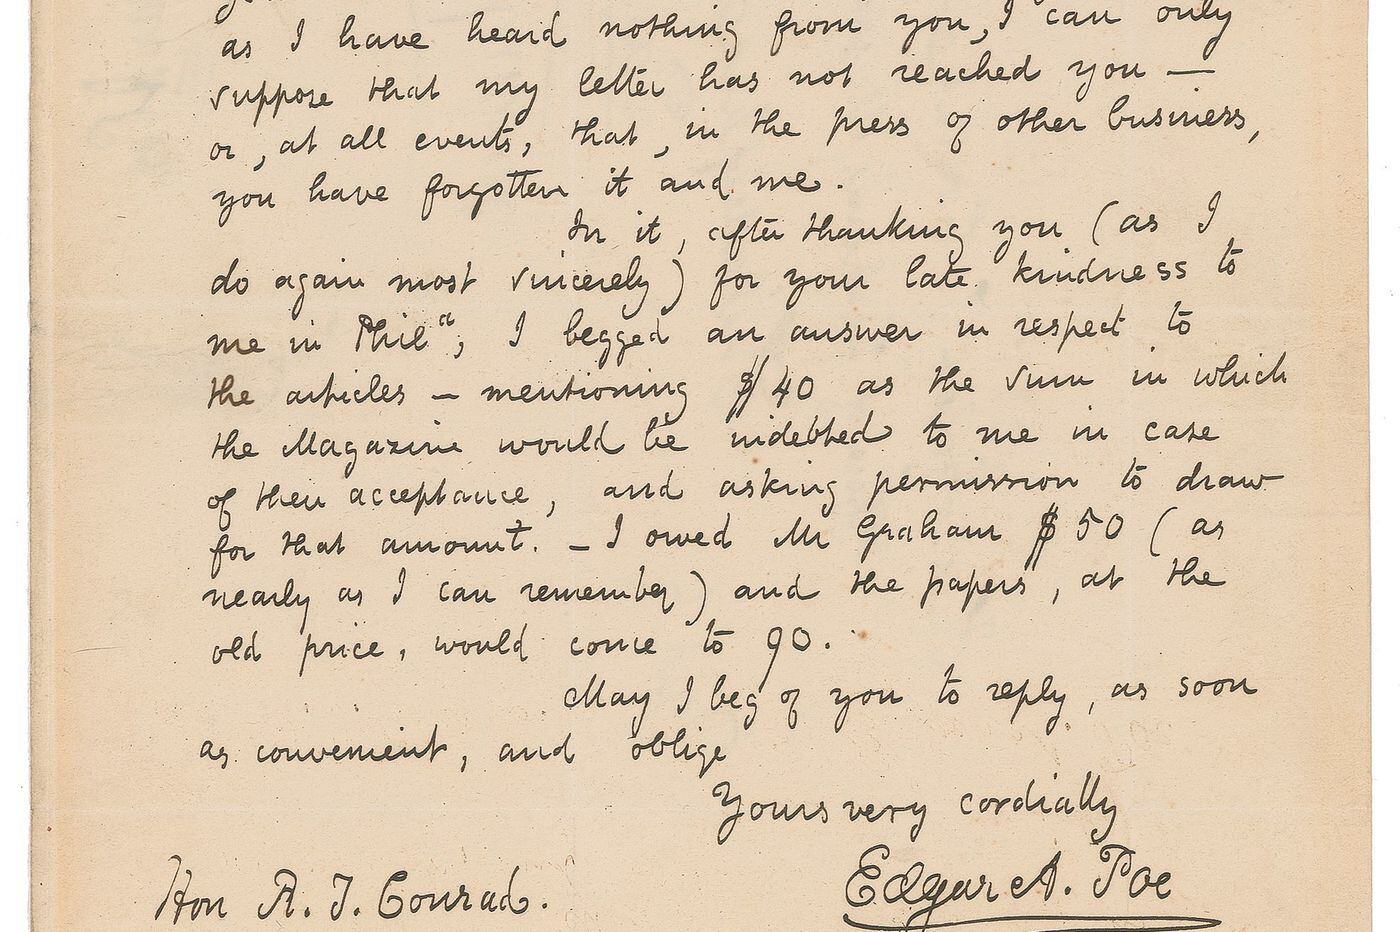 as I have heard nothing from you, I can only
suppose that my letter has not reached you —
or, at all events, that, in the press of other business,
you have forgotten it and me.
In it, after thanking you (as I
do again most sincerely) for your late kindness to
me in Phil<sup>a</sup>, I begged an answer in respect to
the articles — mentioning $40 as the sum in which
the Magazine would be indebted to me in case
of their acceptance, and asking permission to draw
for that amount. — I owed Mr Graham $50 (as
nearly as I can remember) and the papers, at the
old price, would come to 90.
May I beg of you to reply, as soon
as convenient, and oblige
Yours very cordially
Edgar A. Poe
Hon R. T. Conrad.